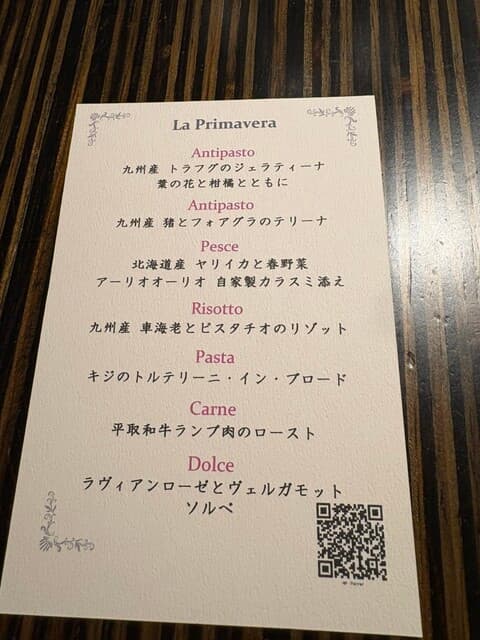 La Primavera
Antipasto
九州産 トラフグのジェラティーナ
葉の花と柑橘とともに
Antipasto
九州産 猪とフォアグラのテリーナ
Pesce
北海道産 ヤリイカと春野菜
アーリオオーリオ 自家製カラスミ添え
Risotto
九州産 車海老とピスタチオのリゾット
Pasta
キジのトルテリーニ・イン・ブロード
Carne
平取和牛ランプ肉のロースト
Dolce
ラヴィアンローゼとヴェルガモット
ソルベ